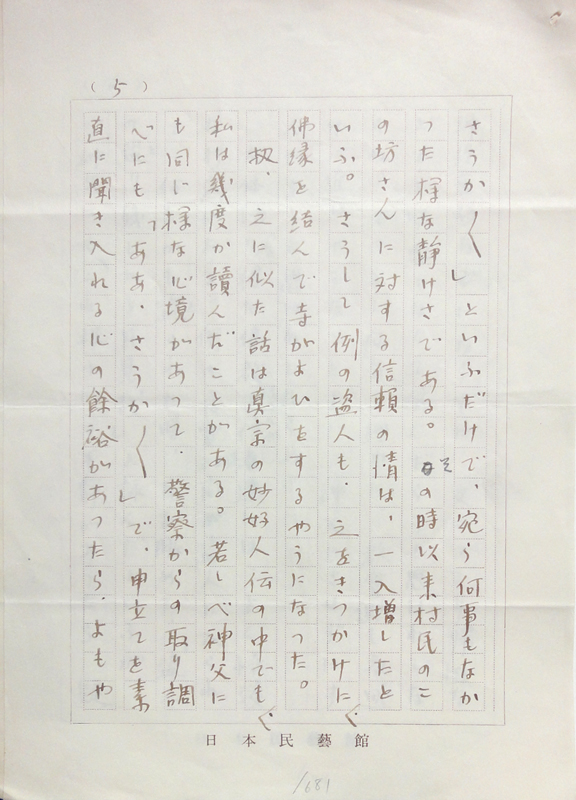 （5）
さうか〱」といふだけで、宛ら何事もなか
つた様な静けさである。その時以来村民のこ
の坊さんに対する信頼の情は、一入増したと
いふ。さうして例の盗人も、之をきつかけに
佛縁を結んで寺がよひをするやうになつた。
扨、之に似た話は真宗の妙好人伝の中でも
私は幾度か讀んだことがある。若しベ神父に
も同じ様な心境があつて、警察からの取り調
べにも「ああ、さうか〱」で、申立てを素
直に聞き入れる心の餘裕があつたら、よもや
日本民藝館
1681